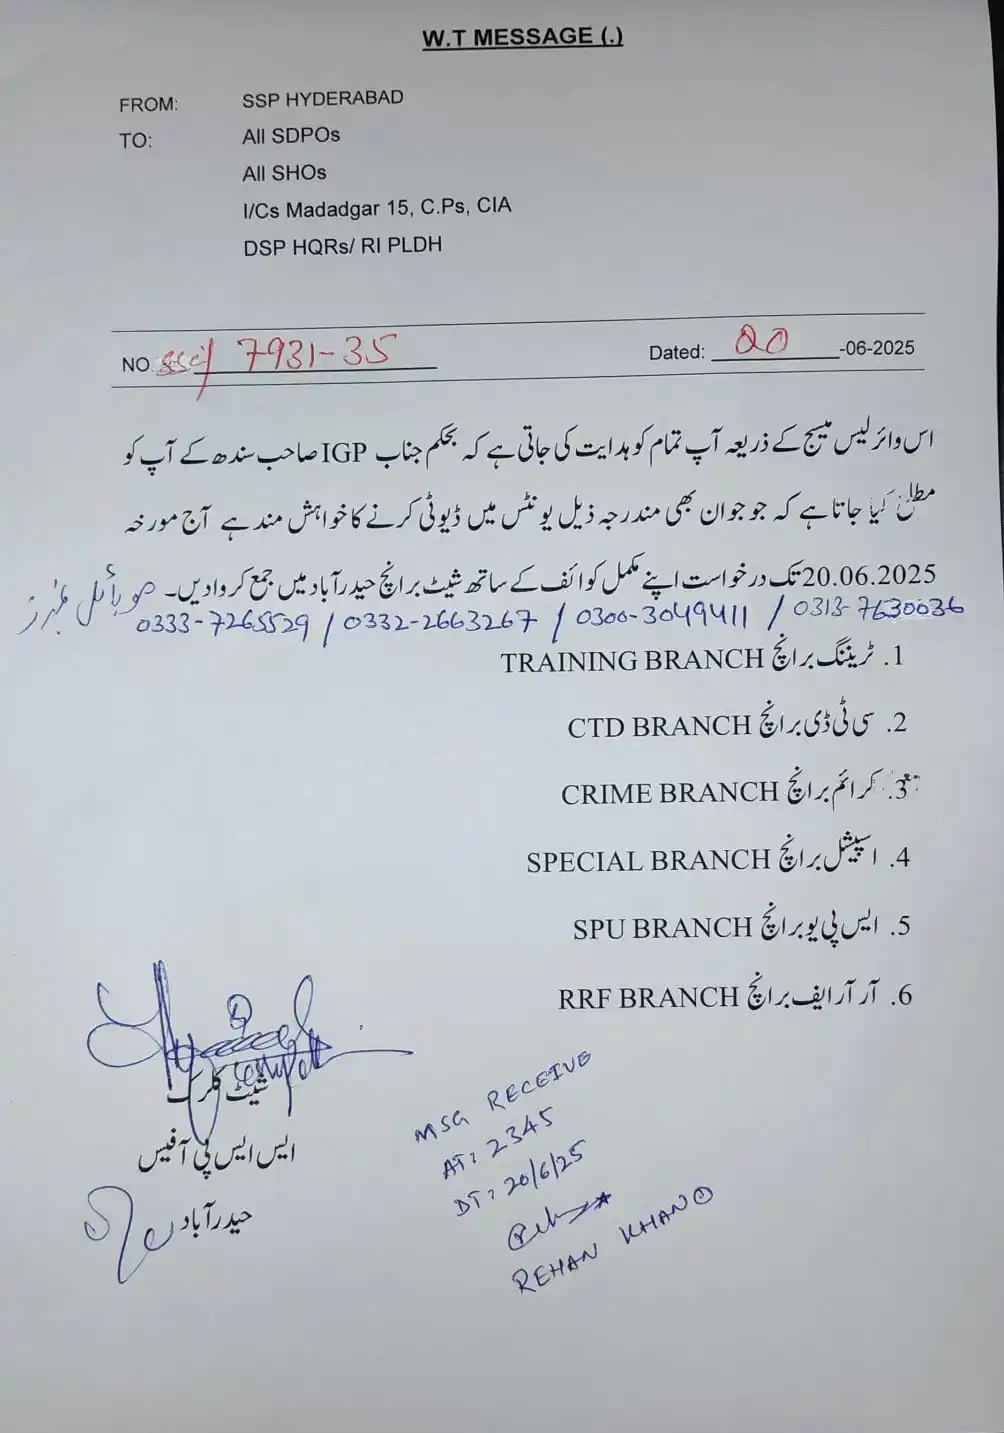 W.T MESSAGE (.)
FROM: SSP HYDERABAD
TO: All SDPOs
All SHOs
I/Cs Madadgar 15, C.Ps, CIA
DSP HQRs/ RI PLDH
NO. 7931-35 Dated: 20-06-2025
اس وائرلیس میسج کے ذریعہ آپ تمام کو ہدایت کی جاتی ہے کہ بحکم جناب IGP صاحب سندھ کے آپ کو
مطلع کیا جاتا ہے کہ جو جوان بھی مندرجہ ذیل یونٹس میں ڈیوٹی کرنے کا خواہش مند ہے آج مورخہ
20.06.2025 تک درخواست اپنے مکمل کوائف کے ساتھ شیٹ برانچ حیدرآباد میں جمع کروادیں۔ موبائل نمبرز
0333-7265529 / 0332-2663267 / 0300-3049411 / 0313-7630036
1. ٹریننگ برانچ TRAINING BRANCH
2. سی ٹی ڈی برانچ CTD BRANCH
3. کرائم برانچ CRIME BRANCH
4. اسپیشل برانچ SPECIAL BRANCH
5. ایس پی یو برانچ SPU BRANCH
6. آر آر ایف برانچ RRF BRANCH
شیٹ کلرک
ایس ایس پی آفیس
حیدرآباد
MSG RECEIVE
AT: 2345
DT: 20/6/25
REHAN KHAN